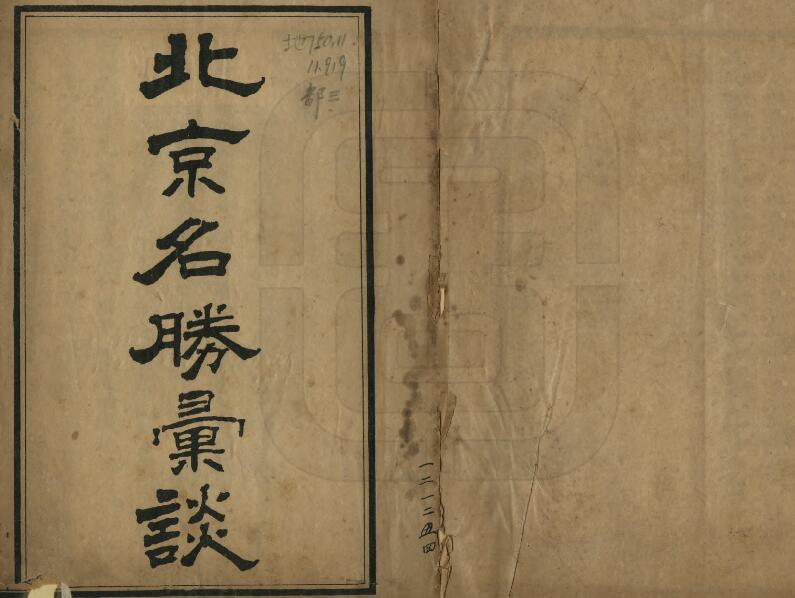 北京名勝彙談
地750.11.
11.919
部三
一二一二五四